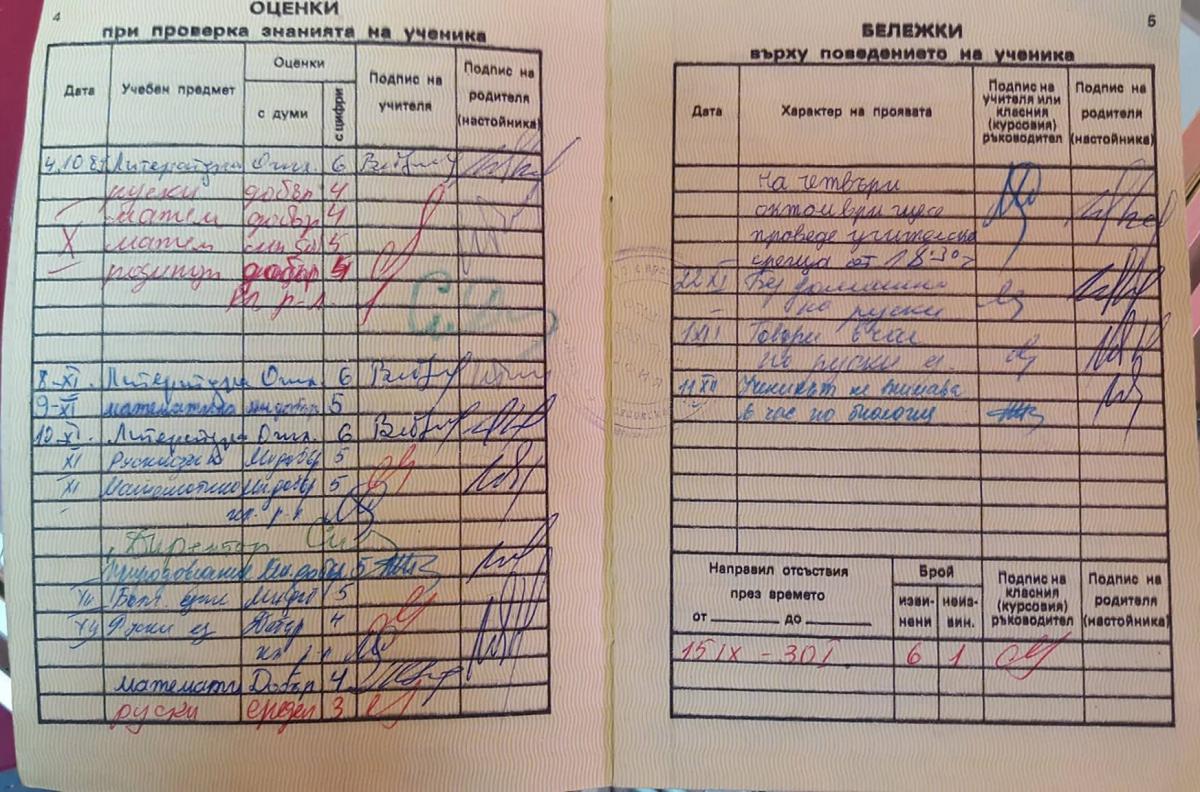 4
ОЦЕНКИ
при проверка знанията на ученика
Дата
Учебен предмет
Оценки
с думи
с цифри
Подпис на учителя
Подпис на родителя (настойника)
4.10 Литература Отл. 6
руски добър 4
матем добър 4
X матем мн 5
добър 4
кл. р-л.
8-XI. Литература Отл. 6
9-XI математика мн добър 5
10-XI. Литература Отл. 6
XI Руски език Мн добър 5
XI Математика Мн добър 5
кл. р-л
Директор
Природознание Мн. добър 5
5
Руски ез Добър 4
кл р-л
математи Добър 4
руски среден 3
5
БЕЛЕЖКИ
върху поведението на ученика
Дата
Характер на проявата
Подпис на учителя или класния (курсовия) ръководител
Подпис на родителя (настойника)
На четвърти
октомври ще се
проведе учителска
среща от 18:30 ч
22 XI Без домашно
по руски
1 XII Говори в час
по руски е.
11 XII Ученикът не внимава
в час по биология
Направил отсъствия
през времето
от до
Брой
изви-
нени
неиз-
вин.
Подпис на класния (курсовия) ръководител
Подпис на родителя (настойника)
15 IX - 30 I. 6 1